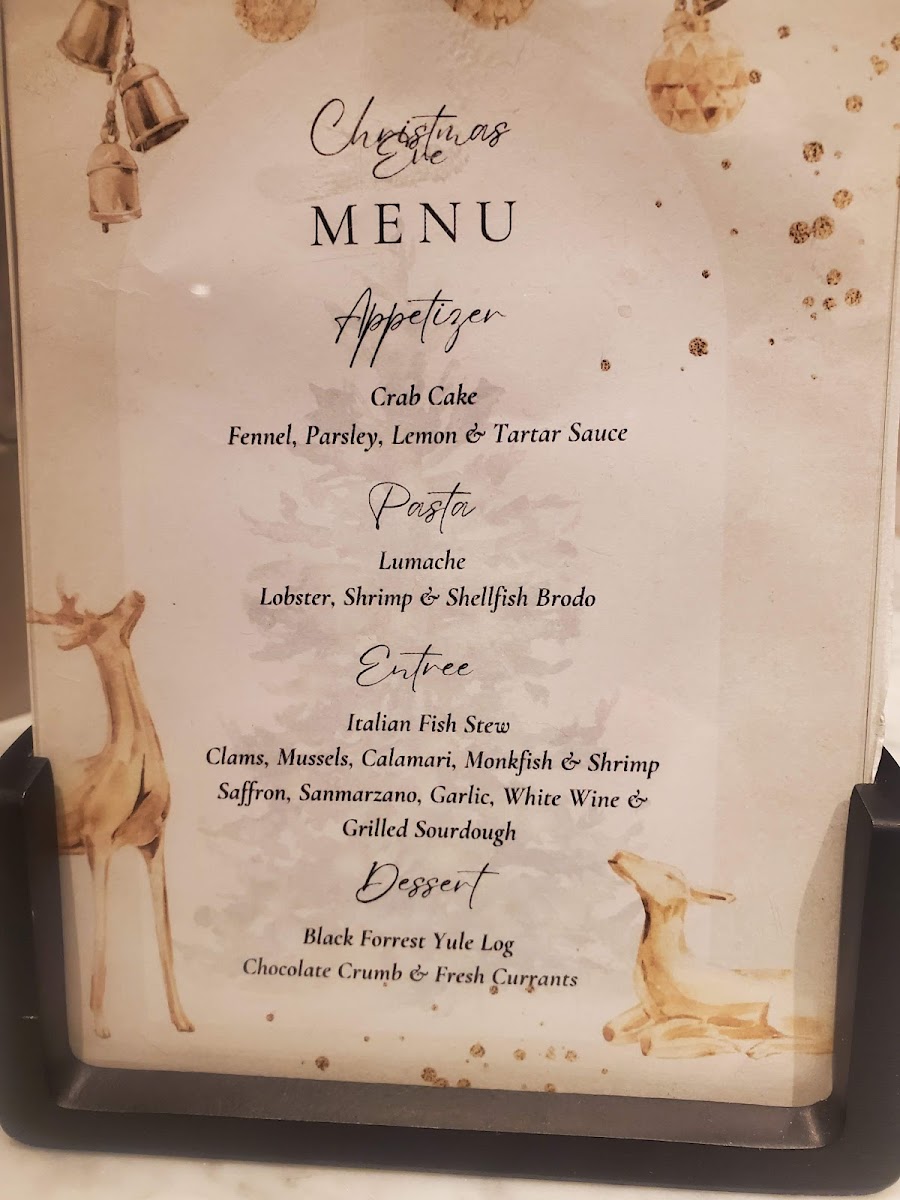 Christmas
Eve
MENU
Appetizer
Crab Cake
Fennel, Parsley, Lemon & Tartar Sauce
Pasta
Lumache
Lobster, Shrimp & Shellfish Brodo
Entree
Italian Fish Stew
Clams, Mussels, Calamari, Monkfish & Shrimp
Saffron, Sanmarzano, Garlic, White Wine &
Grilled Sourdough
Dessert
Black Forrest Yule Log
Chocolate Crumb & Fresh Currants